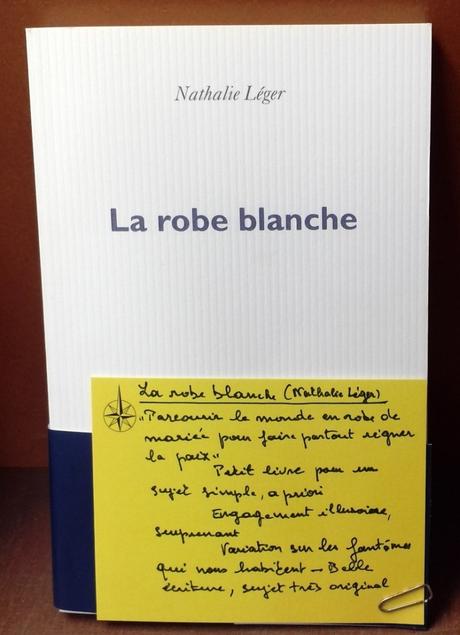 Nathalie Léger
La robe blanche
La robe blanche (Nathalie Léger)
"Parcourir le monde en robe de
mariée pour faire partout régner
la paix"
Petit livre pour un
sujet simple, a priori
Engagement illusoire,
surprenant
Variation sur les fantômes
qui nous habitent → Belle
écriture, sujet très original